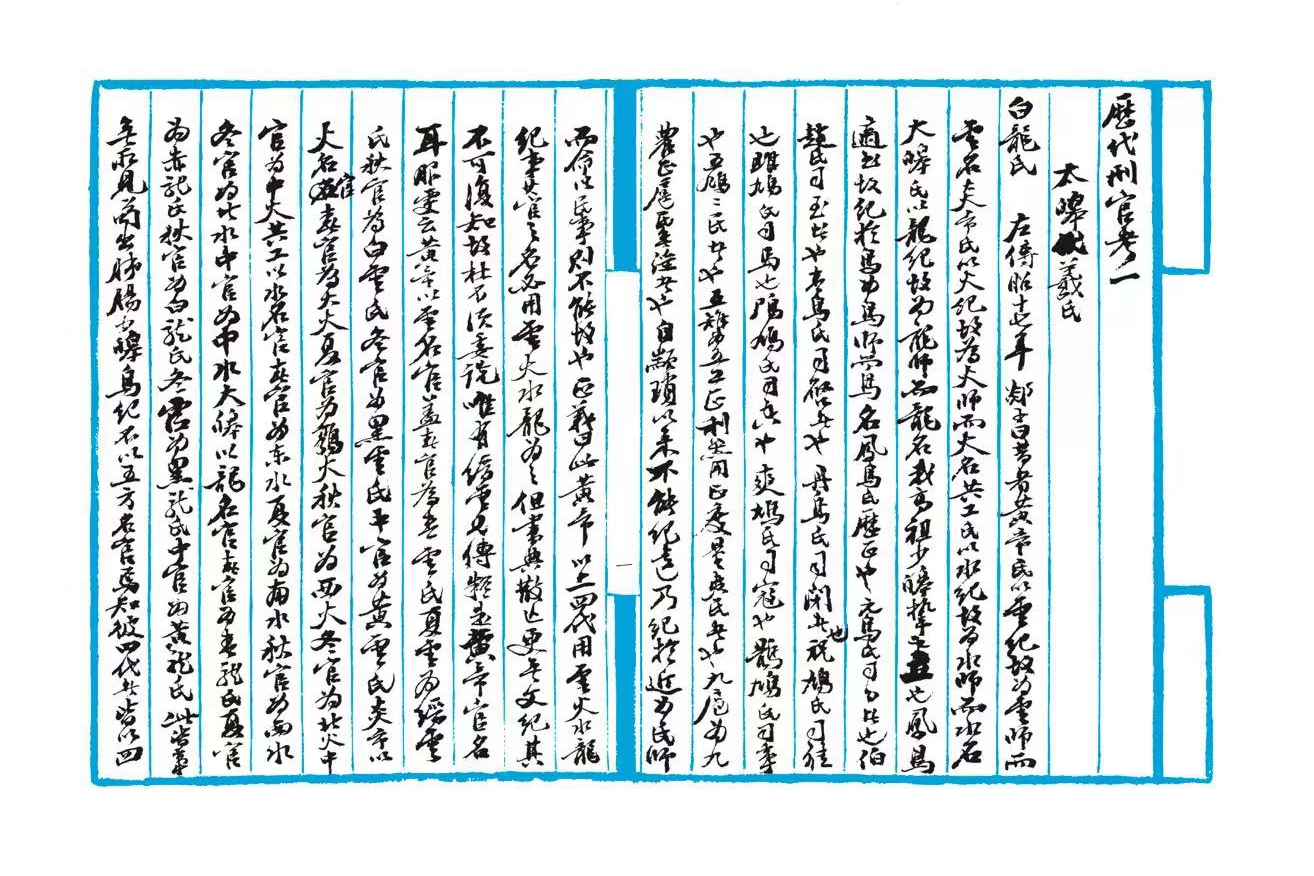 歷代刑官考一
太皥伏羲氏
白龍氏 左傳昭十七年郯子曰昔者黃帝氏以雲紀故為雲師而
雲名炎帝氏以火紀故為火師而火名共工氏以水紀故為水師而水名
大皥氏以龍紀故為龍師而龍名我高祖少皥摯之立也鳳鳥
適至故紀於鳥為鳥師而鳥名鳳鳥氏歷正也元鳥氏司分者也伯
趙氏司至者也青鳥氏司啟者也丹鳥氏司閉者也祝鳩氏司徒
也鴡鳩氏司馬也鳲鳩氏司空也爽鳩氏司寇也鶻鳩氏司事
也五鳩〻民者也五雉為五工正利器用正度量夷民者也九扈為九
農正扈民無淫者也自顓頊以來不能紀遠乃紀於近為民師
而命以民事則不能故也正義曰此黃帝以上四代用雲火水龍
紀事其官之名必用雲火水龍為之但書典散亡更無文紀其
不可復知故杜不復委說唯有縉雲見傳疑是黃帝官名
耳服虔云黃帝以雲名官蓋春官為青雲氏夏雲為縉雲
氏秋官為白雲氏冬官為黑雲氏中官為黃雲氏炎帝以
火名官春官為大火夏官為鶉火秋官為西火冬官為北火中
官為中火共工以水名官春官為東水夏官為南水秋官為西水
冬官為北水中官為中水大皥以龍名官春官為青龍氏夏官
為赤龍氏秋官為白龍氏冬官為黑龍氏中官為黃龍氏此皆事
無所見苟出肺腸少皥鳥紀不以五方名官焉知彼四代者皆以四
一